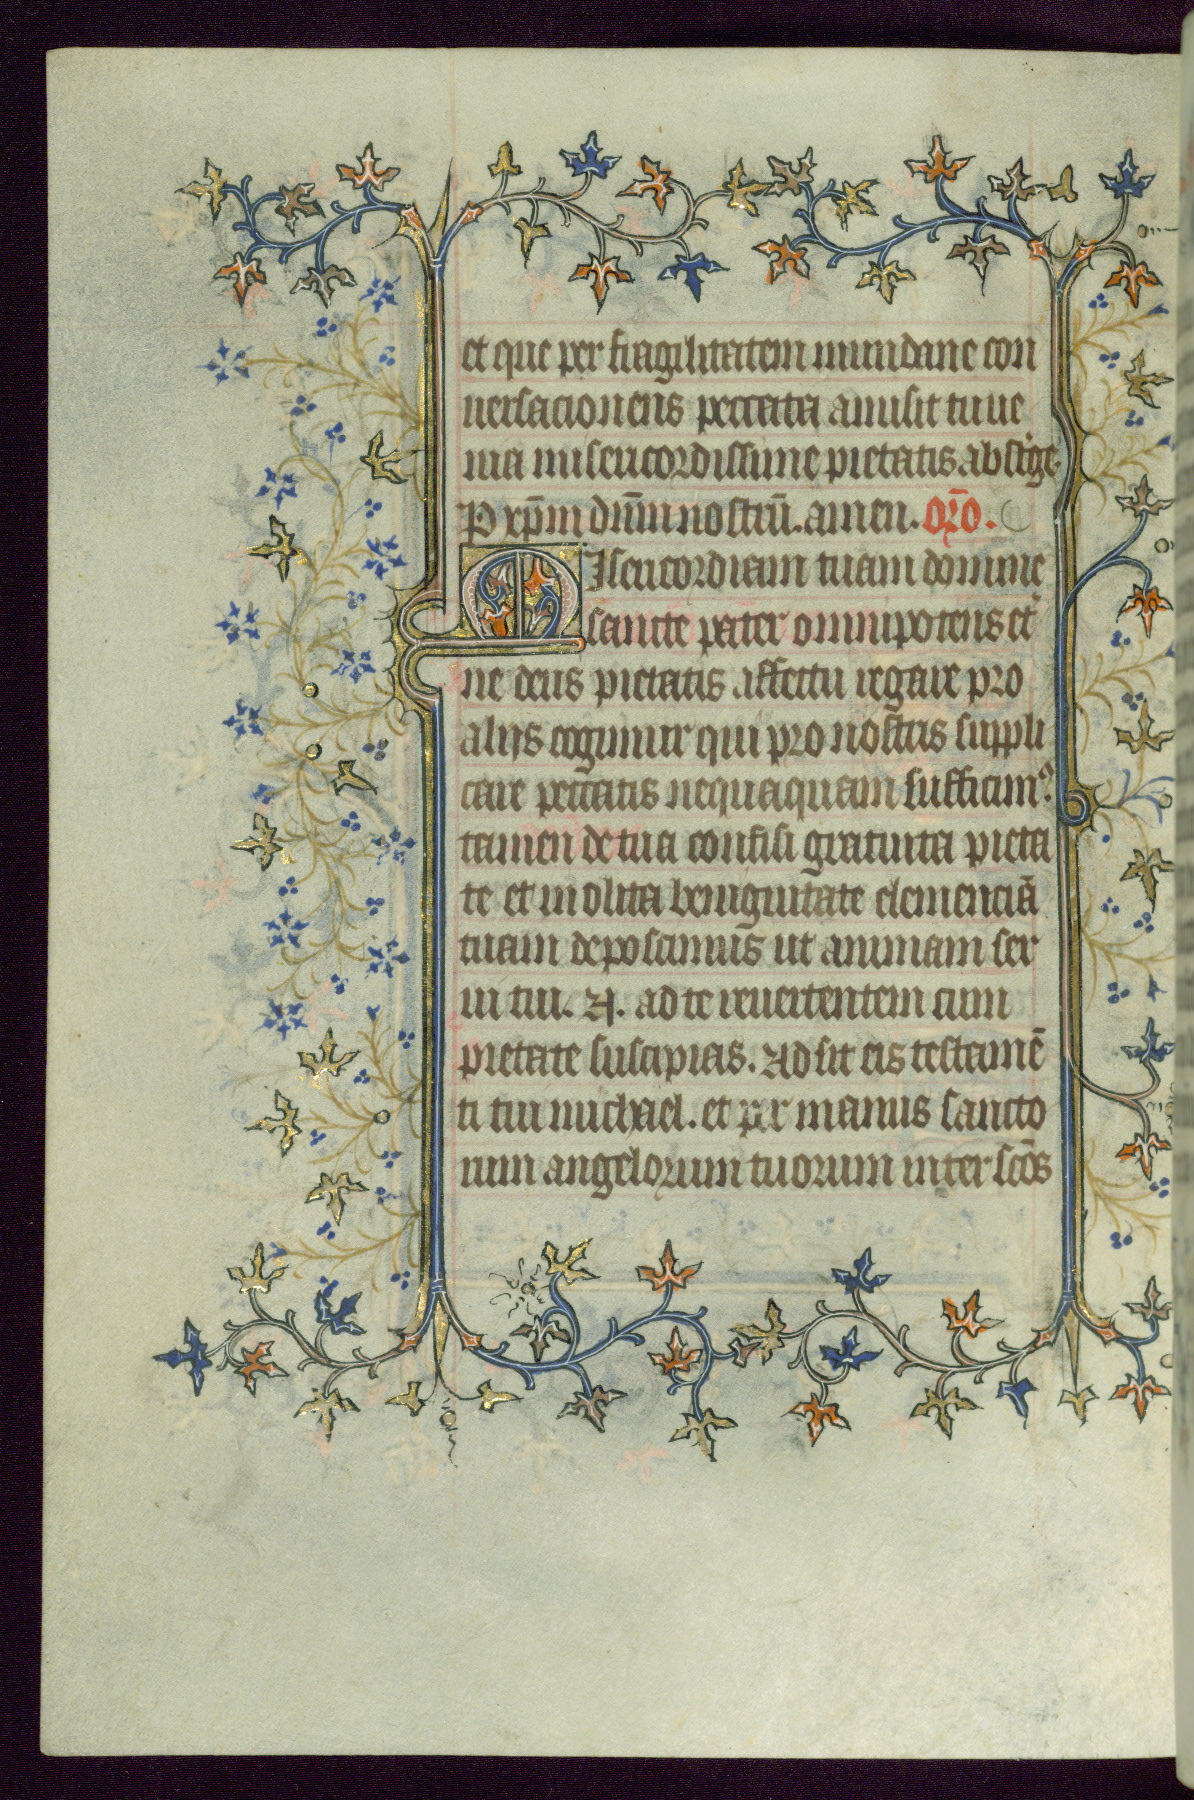 et que per fragilitatem mundane con
uersacionens peccata amisit tu ue
nia misericordissime pietatis abst'ge.
P xp̄m dn̄m nostrū. amen. or̄o.
Misericordiam tuam domine
sancte pater omnipotens et'
ne deus pietatis affectu rogare pro
alijs cogimur qui pro nostris suppli
care peccatis nequaquam sufficim9
tamen de tua confisi gratuita pieta
te et inolita benignitate clemenciā
tuam deposcimus ut animam ser
ui tui. N. ad te reuertentem cum
pietate suscipias. Adsit eis testamē
ti tui michael. et per manus sancto
rum angelorum tuorum inter scōs